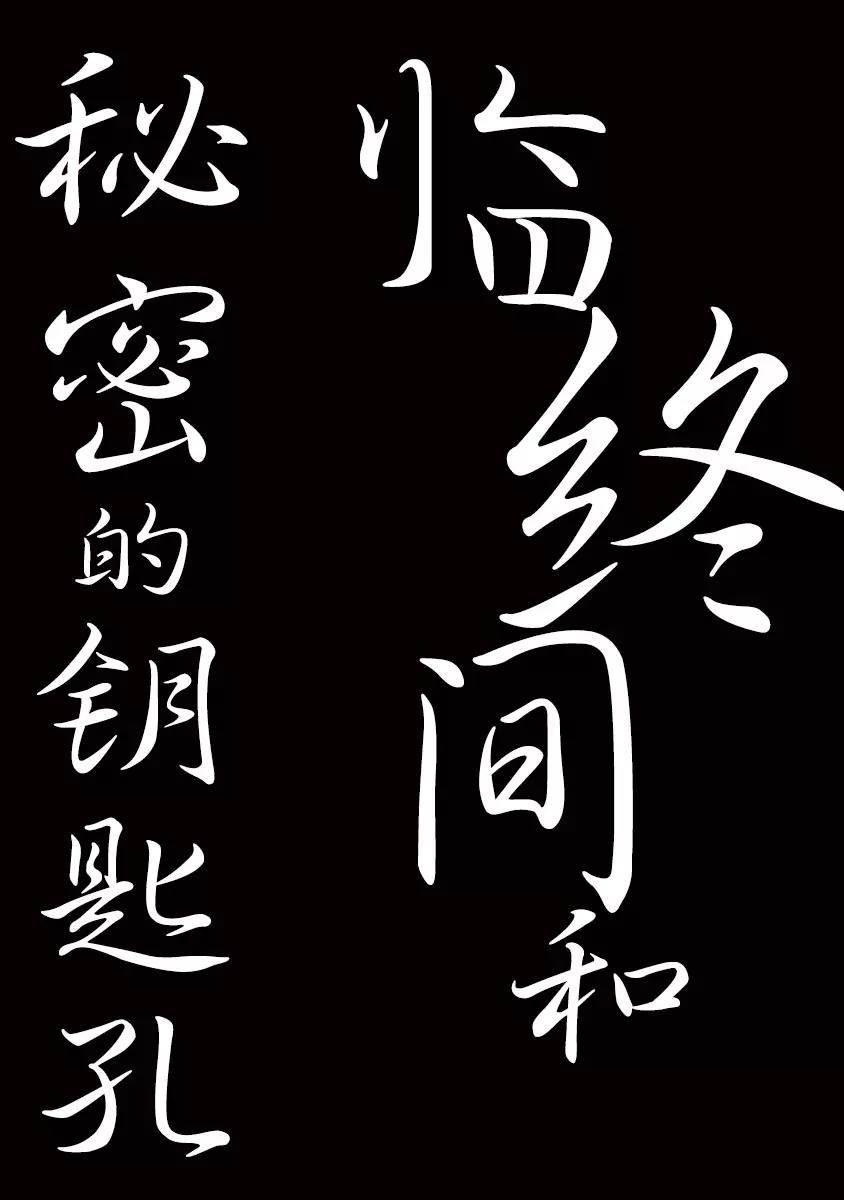 临终间和
秘密的钥匙孔